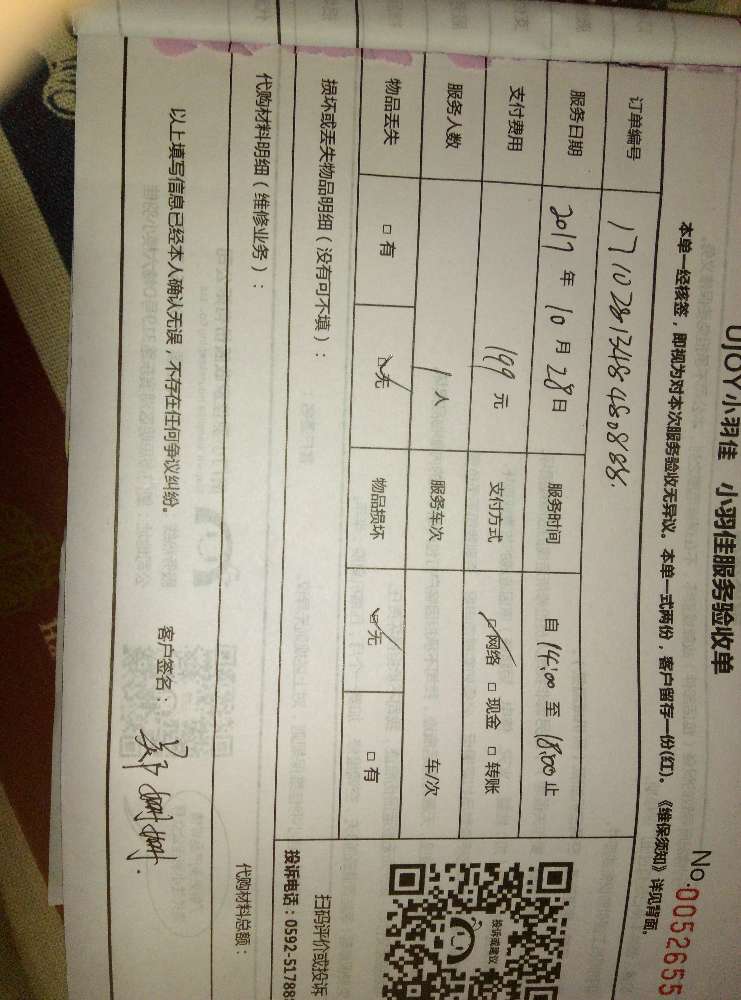 UJOY小羽佳 小羽佳服务验收单
No.0052655
本单一经核签，即视为对本次服务验收无异议。本单一式两份，客户留存一份(红)。《维保须知》详见背面。
订单编号
服务日期 2017 年 10 月 28 日 服务时间 自 14:00 至 18:00 止
支付费用 199 元 支付方式 ☑网络 □现金 □转账
服务人数 1 人 服务车次 车/次
物品丢失 □有 ☑无 物品损坏 ☑无 □有
损坏或丢失物品明细（没有可不填）：
投诉或建议
扫码评价或投诉
投诉电话：0592-51788
代购材料明细（维修业务）：
代购材料总额：
以上填写信息已经本人确认无误，不存在任何争议纠纷。 客户签名：